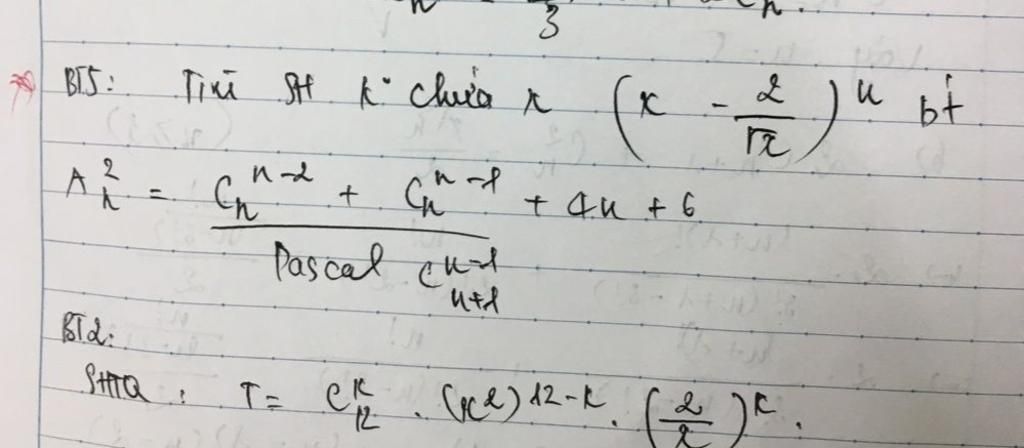 BT5: Tìm SH k° chứa x (x - 2/√x)^n bt
A_n^2 = C_n^{n-2} + C_n^{n-1} + 4n + 6
Pascal C_{n+1}^{n-1}
BT2:
SHTQ : T = C_{12}^k . (x^2)^{12-k} . (2/x)^k .